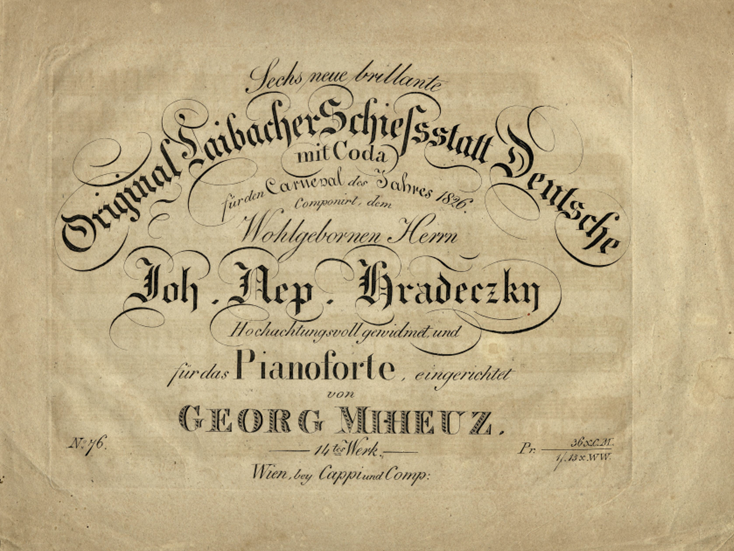 Sechs neue brillante
Original Laibacher Schiessstatt Deutsche
mit Coda
für den Carneval des Jahres 1826.
Componirt, dem
Wohlgebornen Herrn
Joh. Nep. Hradeczky
Hochachtungsvoll gewidmet und
für das Pianoforte, eingerichtet
von
GEORG MIHEUZ.
No. 76.
14tes Werk.
Pr.
Wien, bey Cappi und Comp: